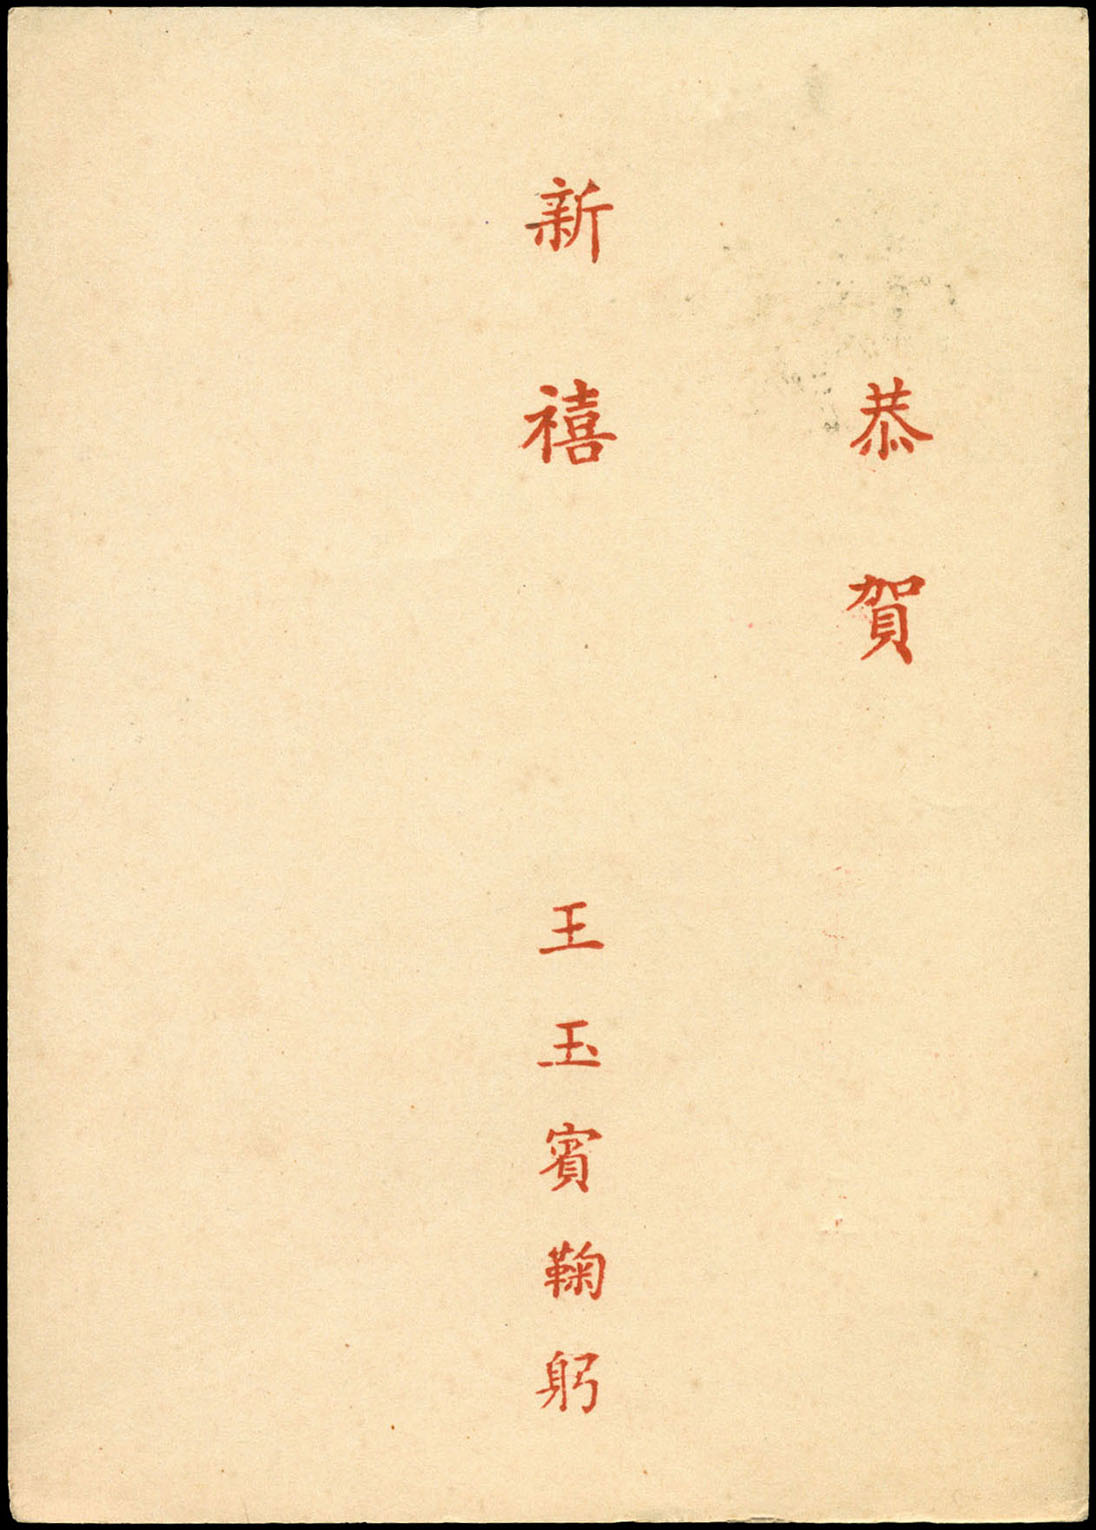 恭賀
新禧
王玉賓鞠躬